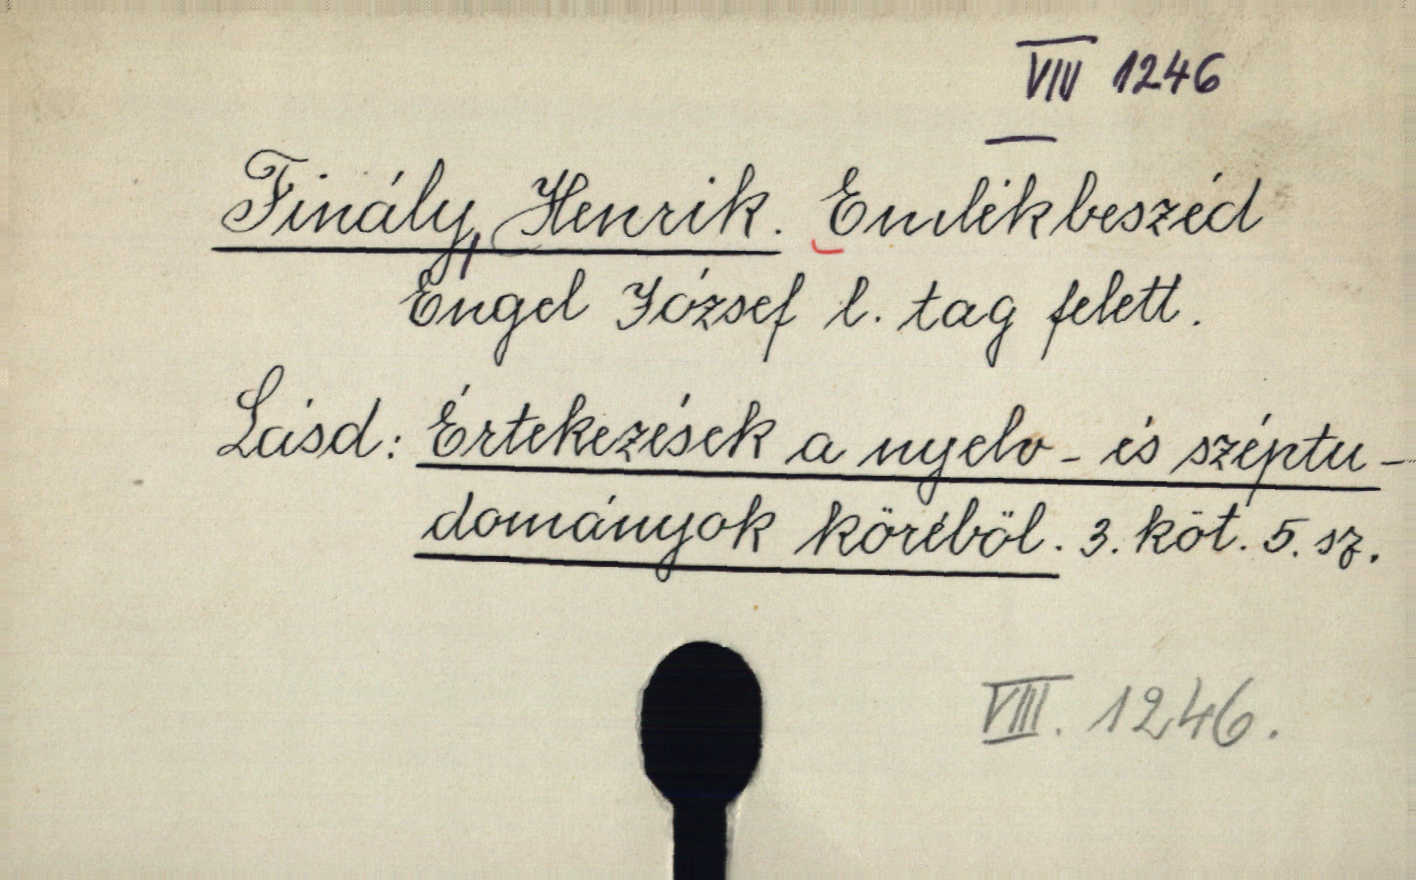 VIII 1246
Finály, Henrik. Emlékbeszéd
Engel József l. tag felett.
Lásd: Értekezések a nyelv- és széptu-
dományok köréböl. 3. köt. 5. sz.
VIII. 1246.